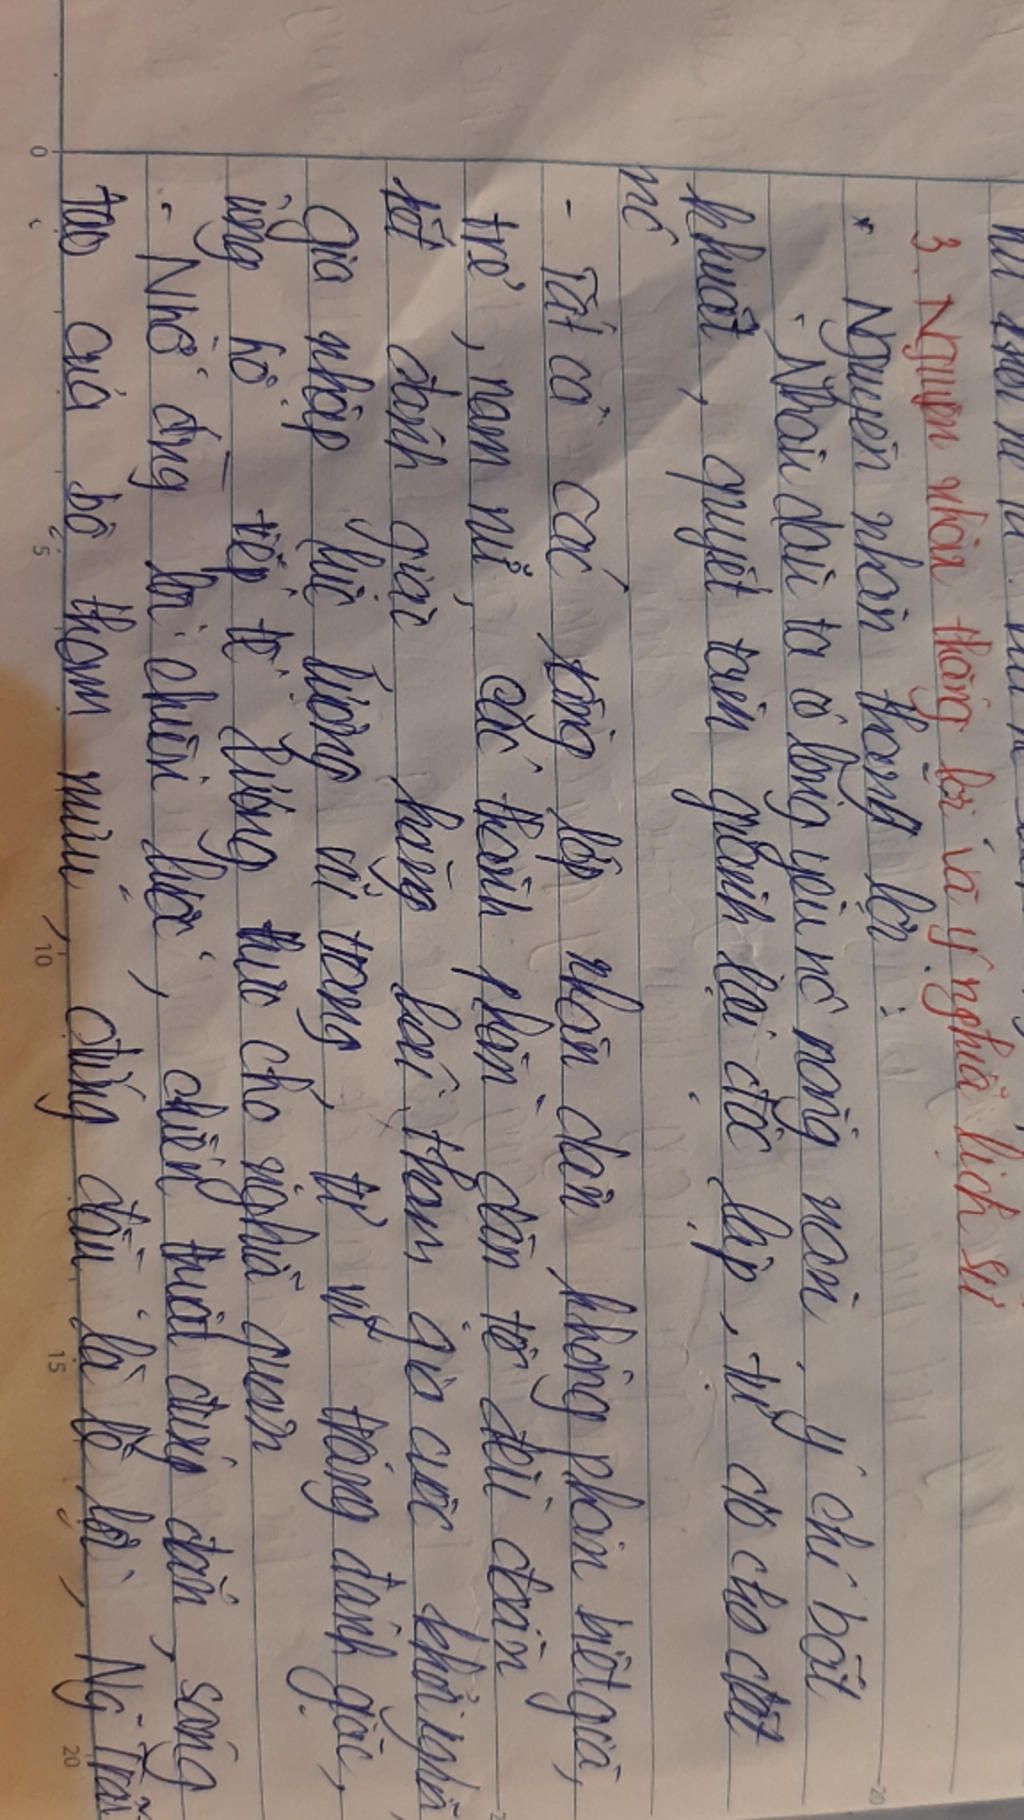 3. Nguyên nhân thắng lợi và ý nghĩa lịch sử
* Nguyên nhân thắng lợi :
- Nhân dân ta có lòng yêu nc nồng nàn, ý chí bất
khuất, quyết tâm giành lại độc lập, tự do cho đất
nc
- Tất cả các tầng lớp nhân dân không phân biệt già,
trẻ, nam nữ, các thành phần dân tộc đều đoàn
kết đánh giặc hăng hái tham gia cuộc khởi nghĩa
Gia nhập lực lượng vũ trang, tự vũ trang đánh giặc,
ủng hộ tiếp tế lương thực cho nghĩa quân
- Nhờ đường lối chiến lược, chiến thuật đúng đắn, sáng
tạo của bộ tham mưu, đứng đầu là Lê Lợi, Ng Trãi
0 5 10 15 20